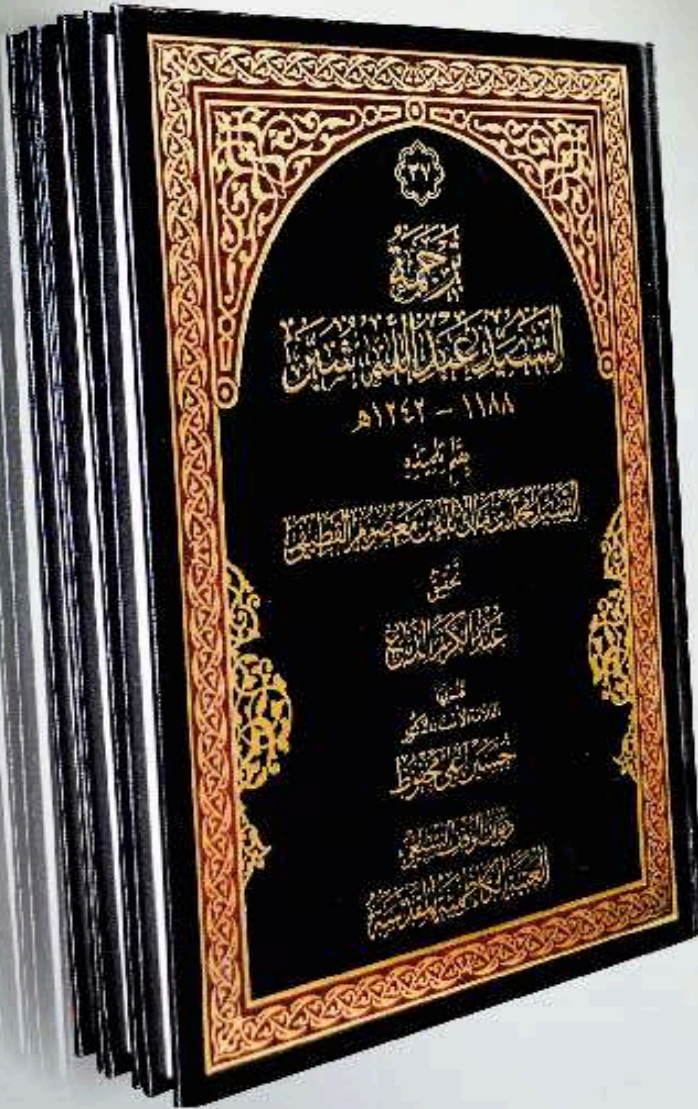 ٣٧
ترجمة
السيد عبد الله شبر
١١٨٨ - ١٢٤٢هـ
بقلم تلميذه
السيد محمد بن مال الله بن معصوم القطيفي
تحقيق
عبد الكريم الدباغ
قدم لها
العلامة الأستاذ الدكتور
حسين علي محفوظ
ديوان الوقف الشيعي
العتبة الكاظمية المقدسة